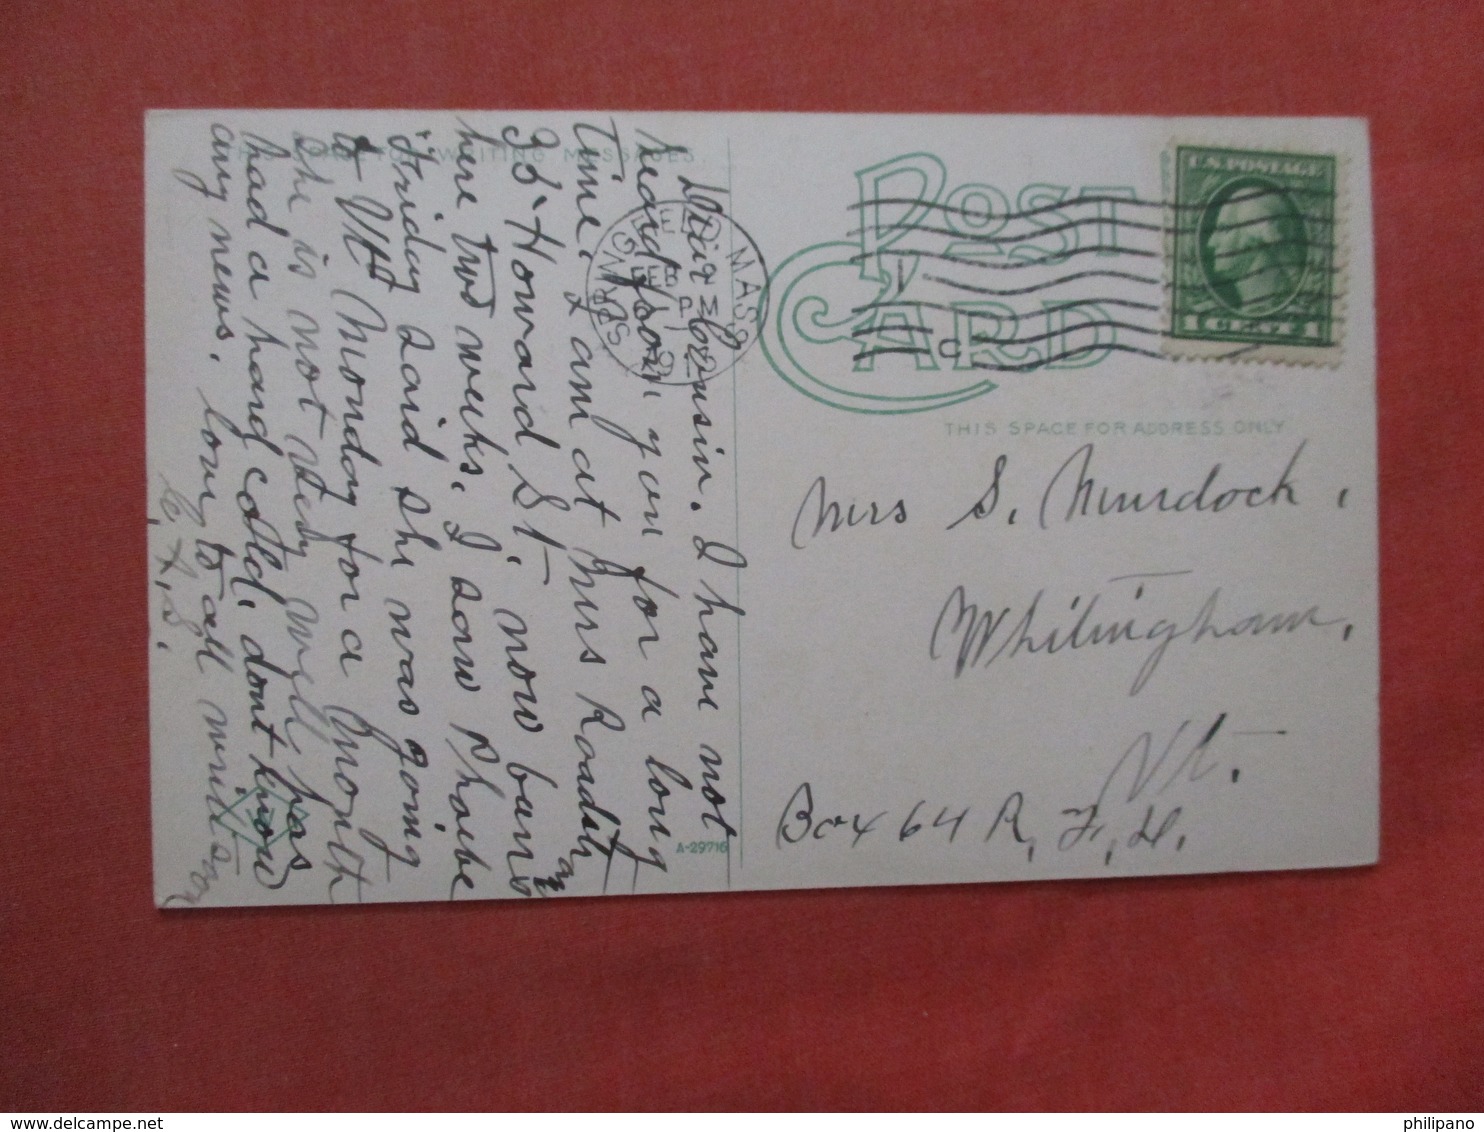 THIS SPACE FOR WRITING MESSAGES.
Dear Cousin. I have not
heard from you for a long
time. I am at Mrs
35 Howard St. now been
here two weeks. I saw Phoebe
Friday said she was going
to Vt Monday for a month
she is not very well, has
had a hard cold. dont know
any news. love to all write soon
SPRINGFIELD MASS
FEB
PM
191
C
POST CARD
U.S. POSTAGE
1 CENT 1
THIS SPACE FOR ADDRESS ONLY
Mrs S. Murdock,
Whitingham,
Vt.
Box 64 R. F. D.
A-29716
philipano